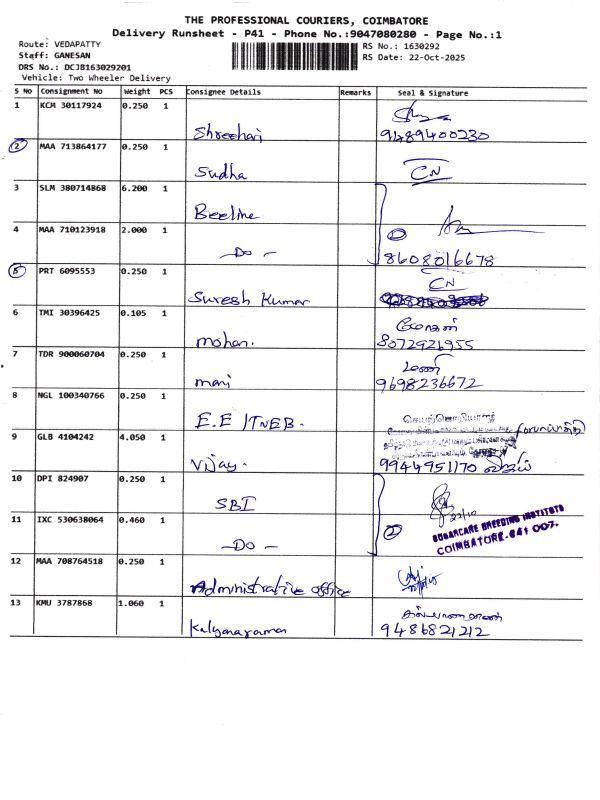 THE PROFESSIONAL COURIERS, COIMBATORE
Delivery Runsheet - P41 - Phone No.:9047080280 - Page No.:1
Route: VEDAPATTY
Staff: GANESAN
DRS No.: DCJB163029201
Vehicle: Two Wheeler Delivery
RS No.: 1630292
RS Date: 22-Oct-2025
S No Consignment No Weight PCS Consignee Details Remarks Seal & Signature
1 KCM 30117924 0.250 1
Shreehari 9489400230
2 MAA 713864177 0.250 1
Sudha CN
3 SLM 380714868 6.200 1
Beeline
4 MAA 710123918 2.000 1
-Do- 8608016678
5 PRT 6095553 0.250 1 CN
Suresh Kumar
6 TMI 30396425 0.105 1 மோகன்
mohan. 8072921955
7 TDR 900060704 0.250 1 மணி
mani 9698236672
8 NGL 100340766 0.250 1
E.E TNEB.
9 GLB 4104242 4.050 1
Vijay. 9944951170 விஜய்
10 DPI 824907 0.250 1
SBI 22/10
11 IXC 530638064 0.460 1 2 SUGARCANE BREEDING INSTITUTE
-Do- COIMBATORE-641 007.
12 MAA 708764518 0.250 1
Administrative office
13 KMU 3787868 1.060 1
Kalyanaraman 9486821212